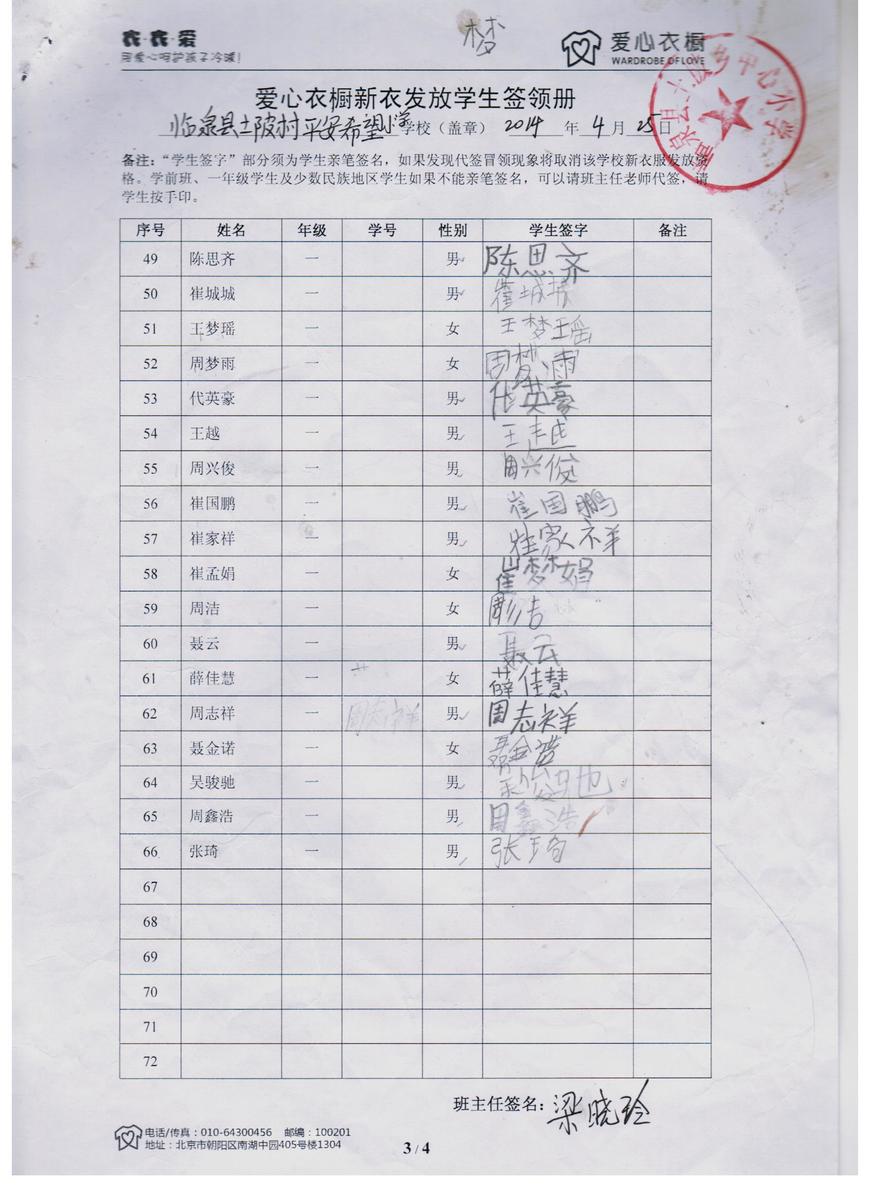 衣·衣·爱
用爱心呵护孩子冷暖!
梦
爱心衣橱
WARDROBE OF LOVE
爱心衣橱新衣发放学生签领册
临泉县土陂村平安希望小学 学校（盖章） 2014 年 4 月 25 日
泉县土陂乡中心小学
备注：“学生签字”部分须为学生亲笔签名，如果发现代签冒领现象将取消该学校新衣服发放资
格。学前班、一年级学生及少数民族地区学生如果不能亲笔签名，可以请班主任老师代签，请
学生按手印。
序号 姓名 年级 学号 性别 学生签字 备注
49 陈思齐 一 男 陈思齐
50 崔城城 一 男 崔城城
51 王梦瑶 一 女 王梦瑶
52 周梦雨 一 女 周梦雨
53 代英豪 一 男 代英豪
54 王越 一 男 王越
55 周兴俊 一 男 周兴俊
56 崔国鹏 一 男 崔国鹏
57 崔家祥 一 男 崔家祥
58 崔孟娟 一 女 崔梦娟
59 周洁 一 女 周洁
60 聂云 一 男 聂云
61 薛佳慧 一 女 薛佳慧
62 周志祥 一 周志祥 男 周志祥
63 聂金诺 一 女 聂金诺
64 吴骏驰 一 男 吴骏驰
65 周鑫浩 一 男 周鑫浩
66 张琦 一 男 张琦
67
68
69
70
71
72
班主任签名：梁晓玲
电话/传真：010-64300456 邮编：100201
地址：北京市朝阳区南湖中园405号楼1304
3 / 4